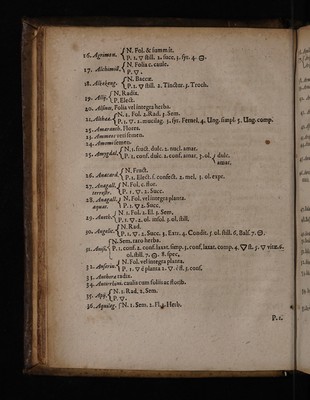 16. Agrimon. { N. Fol. & summit.
P. 1. ▽ still. 2. succ. 3. syr. 4. ⊖.
17. Alchimill. { N. Folia c. caule.
P. ▽.
18. Alkekeng. { N. Baccæ.
P. 1. ▽ still. 2. Tinctor. 3. Troch.
19. { N. Radix.
P. Elect.
20. Alsinæ, Folia vel integra herba.
Althææ. { N. 1. Fol. 2. Rad. 3. Sem.
P. 1. ▽. 2. mucilag. 3. syr. Fernel. 4. Ung. simpl. 5. Ung. comp.
Amaranth. Flores.
Ammeos veri semen.
Amomi semen.
25. Amygdal. { N. 1. fruct. dulc. 2. nucl. amar.
P. 1. conf. dulc. 2. conf. amar. 3. ol. { dulc.
amar.
26. Anacard. { N. Fruct.
P. 1. Elect. s. confect. 2. mel. 3. ol. expr.
27. Anagall. terrestr. { N. Fol. c. flor.
P. 1. ▽. 2. Succ.
28. Anagall. aquat. { N. Fol. vel integra planta.
P. 1. ▽ 2. Succ.
29. Aneth. { N. 1. Fol. 2. Fl. 3. Sem.
P. 1. ▽. 2. ol. insol. 3. ol. still.
30. Angelic. { N. Rad.
P. 1. ▽. 2. Succ. 3. Extr. 4. Condit. 5. ol. still. 6. Bals. 7. ⊖.
31. Anisi. { N. Sem. raro herba.
P. 1. conf. 2. conf. laxat. simp. 3. conf. laxat. comp. 4. ▽ st. 5. ▽ vitæ. 6. ol. still. 7. ⊖. 8. spec.
32. Anserin. { N. Fol. vel integra planta.
P. 1. ▽ è planta 2. ▽ è fl. 3. conf.
33. Anthora radix.
34. Antirrhini. caulis cum foliis ac florib.
35. Apij. { N. 1. Rad. 2. Sem.
P. ▽.
36. Aquileg. { N. 1. Sem. 2. Fl. 3. Herb.
P. 1.